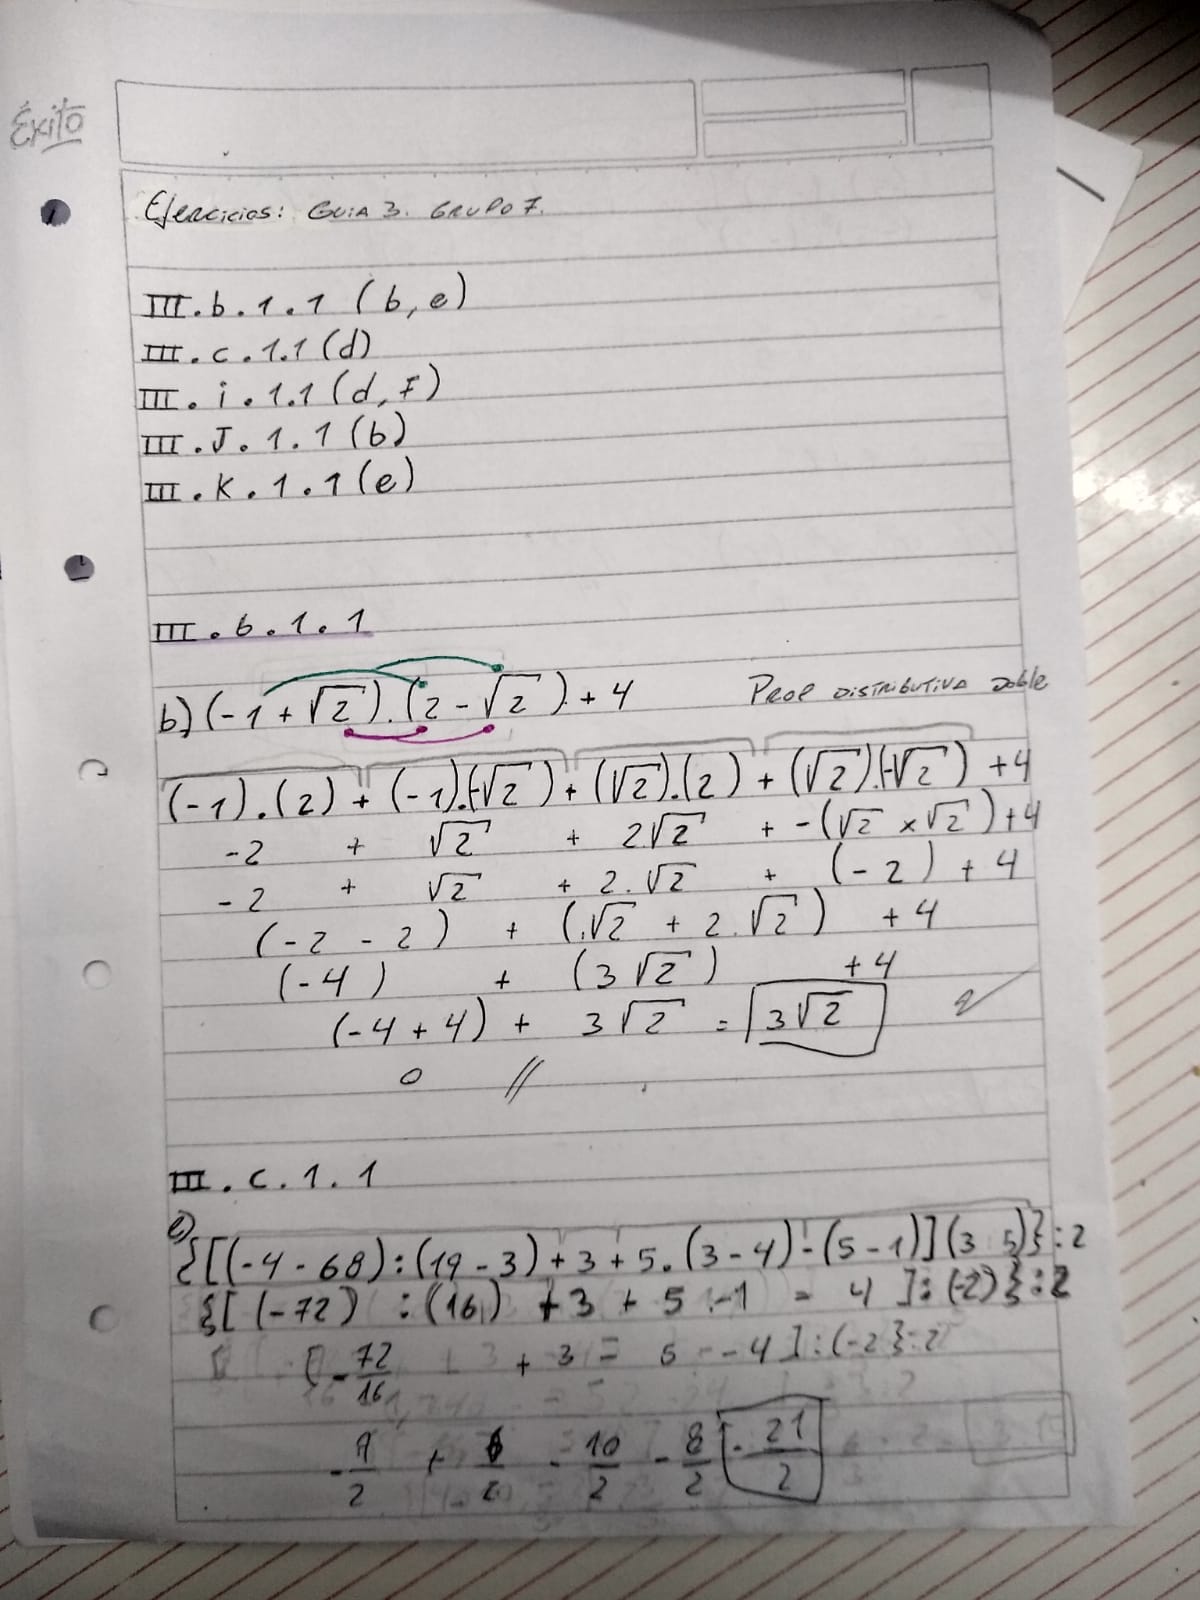 Éxito
Ejercicios: GUIA 3. GRUPO 7.
III.b.1.1 (b, e)
III.c.1.1 (d)
III.i.1.1 (d, F)
III.J.1.1 (b)
III.K.1.1 (e)
III.b.1.1
b) (-1 + √2).(2 - √2) + 4 PROP DISTRIBUTIVA Doble
(-1).(2) + (-1).(-√2) + (√2).(2) + (√2).(-√2) + 4
-2 + √2 + 2√2 + -(√2 x √2) + 4
-2 + √2 + 2.√2 + (-2) + 4
(-2 - 2) + (√2 + 2.√2) + 4
(-4) + (3√2) + 4
(-4 + 4) + 3√2 = 3√2
0 //
III.c.1.1
e)
{[(-4 - 68):(19 - 3) + 3 + 5.(3 - 4) - (5 - 1)](3 5)}:2
{[(-72) :(16) + 3 + 5 .-1 = 4]:(-2)}:2
[-72/16 + 3 = 5 - 4]:(-2}:2
-9/2 + 6/2 - 10/2 - 8/2 - 21/2